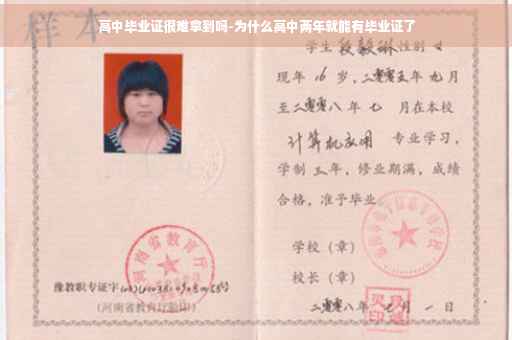 高中毕业证很难拿到吗-为什么高中两年就能有毕业证了
样本
学生段毅琳性别女
现年16岁，二零零五年九月
至二零零八年七月在本校
计算机应用 专业学习，
学制三年，修业期满，成绩
合格，准予毕业
学校（章）
校长（章）
二零零八年七月一日
河南省教育厅
豫教职专证字
（河南省教育厅验印）